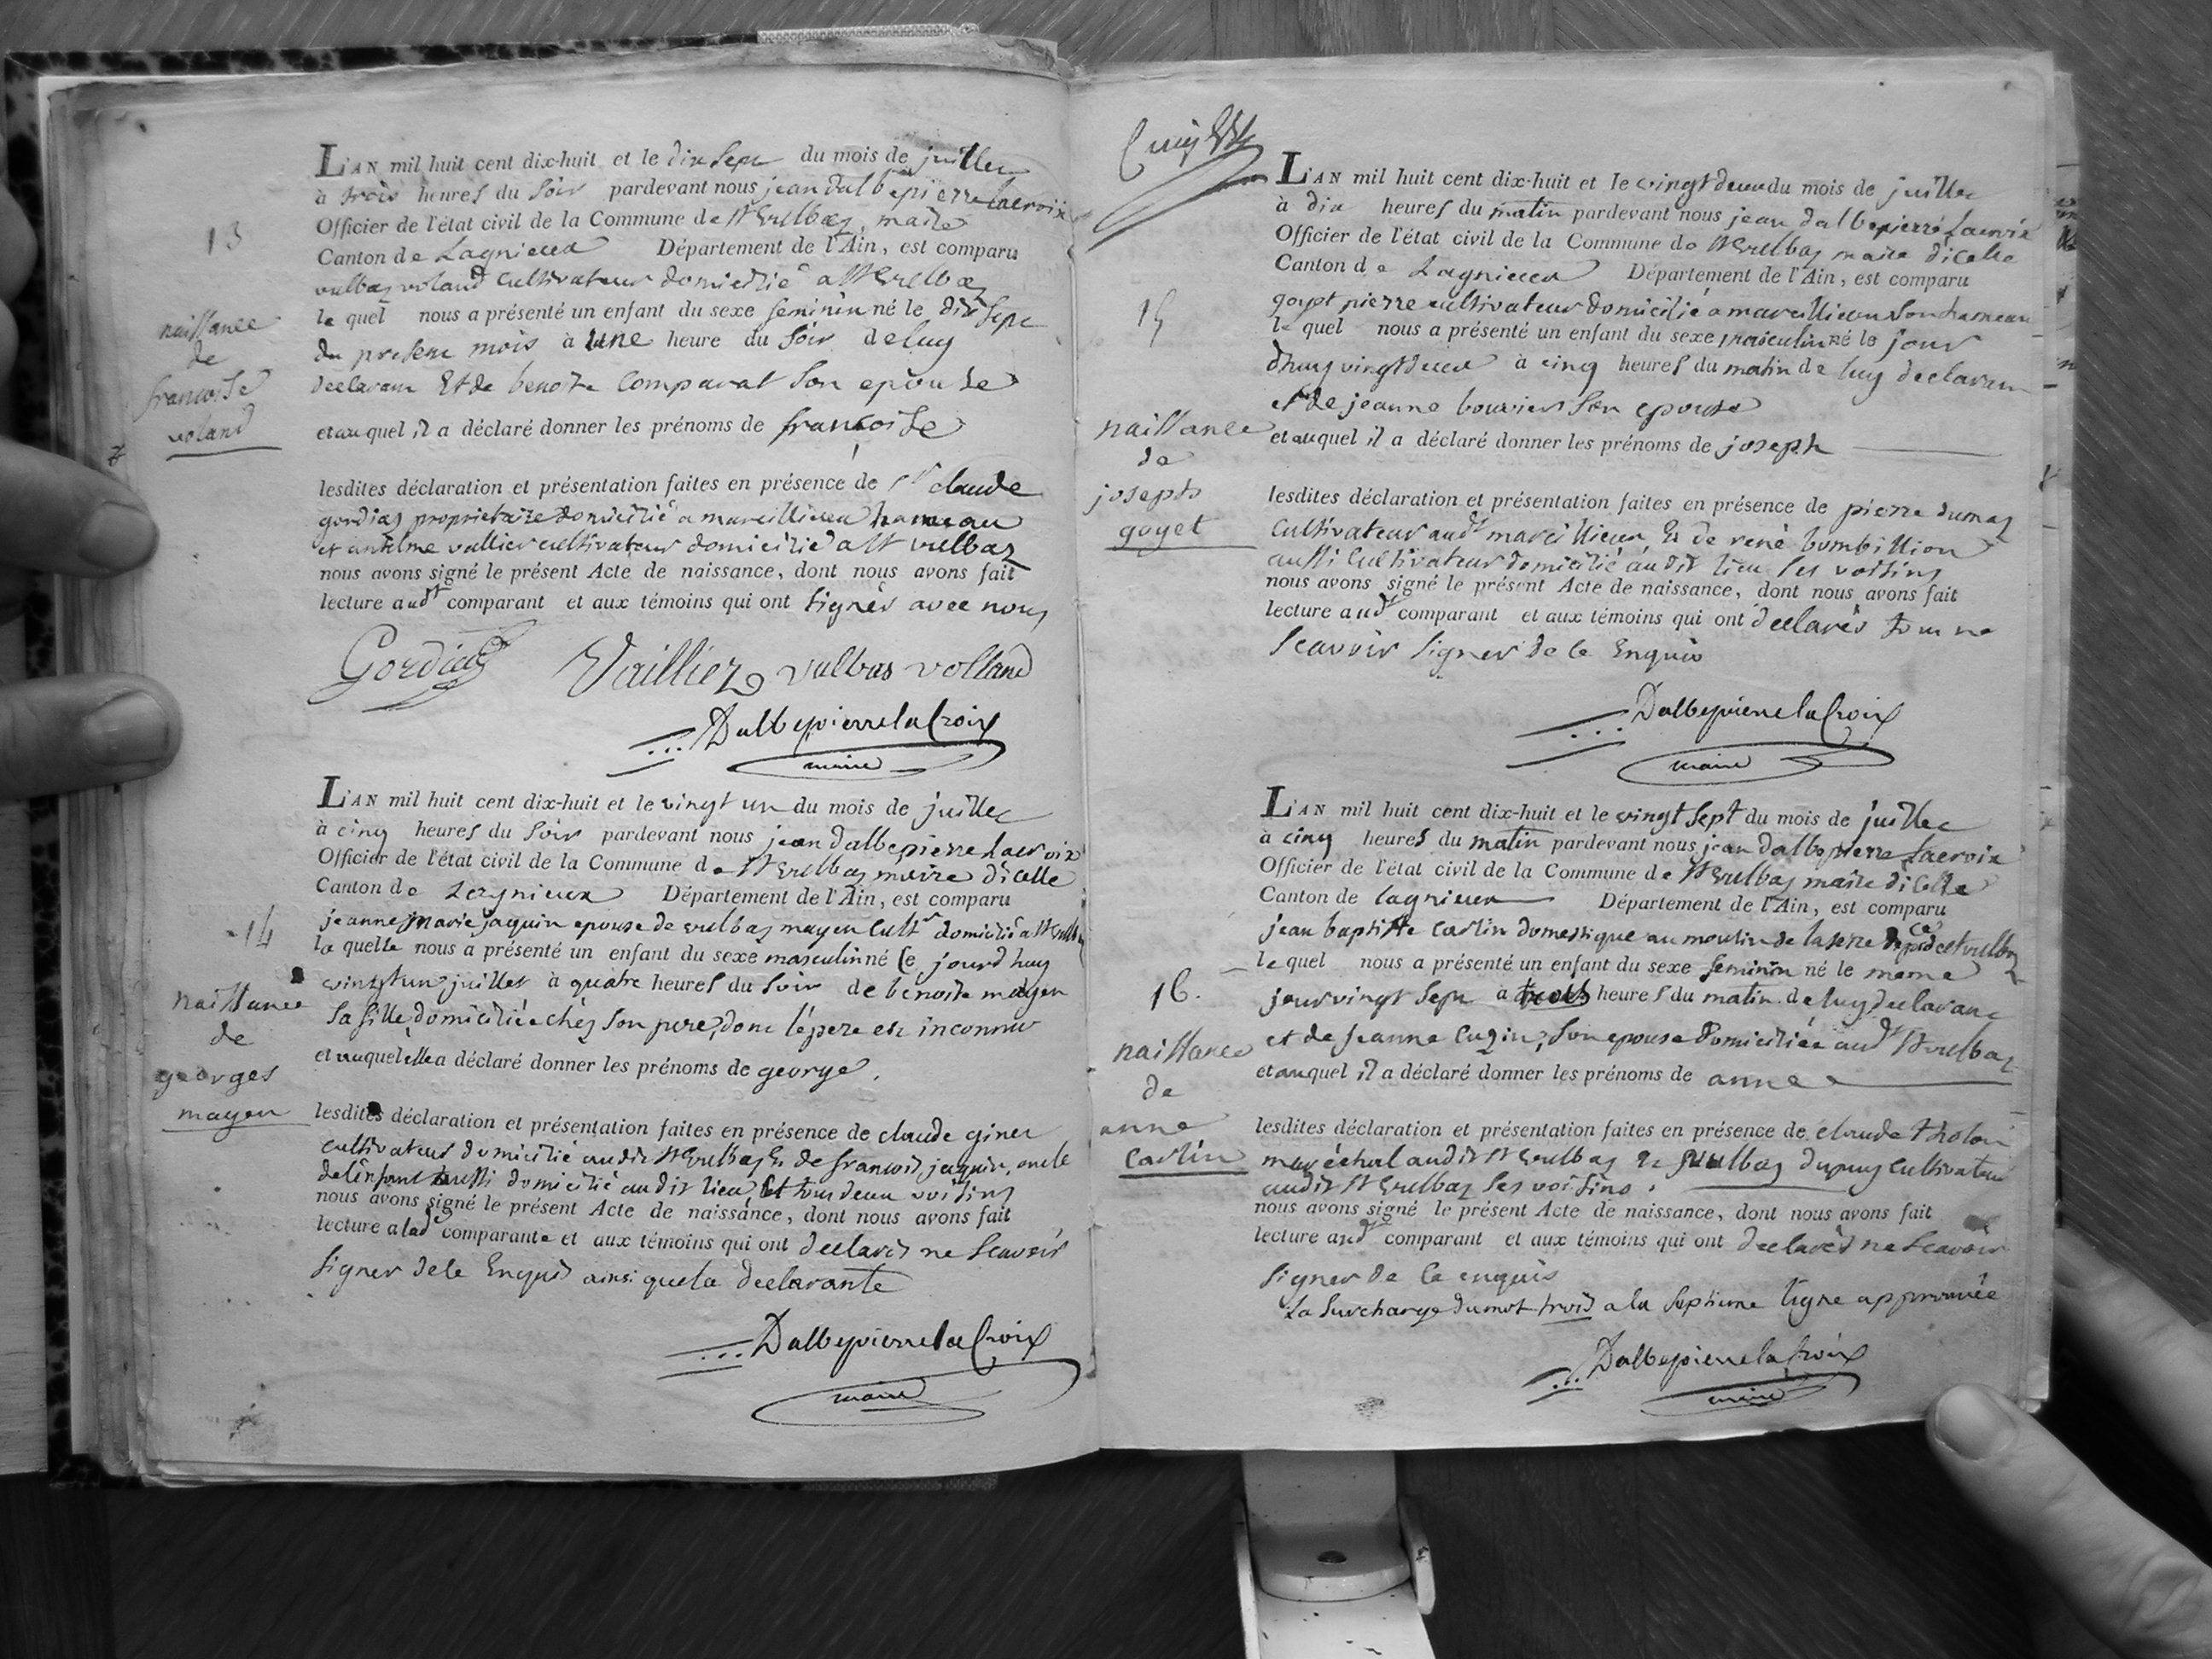 13
naissance
de
francoise
voland
L'AN mil huit cent dix-huit et le dix sept du mois de juillet
à trois heures du soir pardevant nous jean dalbepierre lacroix
Officier de l'état civil de la Commune de St Vulbas, maire
Canton de Lagnieux Département de l'Ain, est comparu
vulbas voland cultivateur domicilié a St Vulbas
le quel nous a présenté un enfant du sexe feminin né le dix sept
du present mois à une heure du soir de luy
declarant Et de benoite Comparat son epouse
et auquel il a déclaré donner les prénoms de francoise
lesdites déclaration et présentation faites en présence de Sr claude
gordias proprietaire domicilié a marcillieux hameau
et antelme vallier cultivateur domicilié a St vulbas
nous avons signé le présent Acte de naissance, dont nous avons fait
lecture audt comparant et aux témoins qui ont signés avec nous
Gordias Vaillier vulbas volland
Dalbepierrelacroix
maire
14
naissance
de
georges
mayen
L'AN mil huit cent dix-huit et le vingt un du mois de juillet
à cinq heures du soir pardevant nous jean dalbepierre Lacroix
Officier de l'état civil de la Commune de St Vulbas maire dicelle
Canton de Lagnieux Département de l'Ain, est comparu
jeanne marie jaquin epouse de vulbas mayen Cultr domicilié a St Vulbas
la quelle nous a présenté un enfant du sexe masculin né Ce jourd huy
vingt un juillet à quatre heures du soir de benoite mayen
sa fille domiciliée chés son pere, dont le pere est inconnu
et auquel ella a déclaré donner les prénoms de george.
lesdites déclaration et présentation faites en présence de claude ginet
cultivateur domicilié audit St Vulbas Et de francois jaquin, oncle
de lenfant aussi domicilié audit lieu, Et tous deux voisins
nous avons signé le présent Acte de naissance, dont nous avons fait
lecture a lade comparante et aux témoins qui ont declarés ne scavoir
signer de ce Enquis ainsi que la declarante
Dalbepierrelacroix
maire
15
naissance
de
joseph
goyet
L'AN mil huit cent dix-huit et le vingt deux du mois de juillet
à dix heures du matin pardevant nous jean dalbepierre Lacroix
Officier de l'état civil de la Commune de St Vulbas maire dicelle
Canton de Lagnieux Département de l'Ain, est comparu
goyet pierre cultivateur domicilié a marcillieux son hameau
le quel nous a présenté un enfant du sexe masculin né le jour
dhuy vingt deux à cinq heures du matin de luy declarant
et de jeanne bouvier son epouse
et auquel il a déclaré donner les prénoms de joseph
lesdites déclaration et présentation faites en présence de pierre dumas
Cultivateur audt marcillieux Et de rené bombillion
aussi Cultivateur domicilié audit lieu ses voisins
nous avons signé le présent Acte de naissance, dont nous avons fait
lecture audt comparant et aux témoins qui ont déclarés tous ne
scavoir signer de ce Enquis
Dalbepierrelacroix
maire
16.
naissance
de
anne
Carlin
L'AN mil huit cent dix-huit et le vingt sept du mois de juillet
à cinq heures du matin pardevant nous jean dalbepierre Lacroix
Officier de l'état civil de la Commune de St Vulbas maire dicelle
Canton de lagnieux Département de l'Ain, est comparu
jean baptiste Carlin domestique au moulin de la serre
le quel nous a présenté un enfant du sexe feminin né le meme
jour vingt sept à trois heures du matin de luy declarant
et de jeanne Cuzin, son epouse domiciliée audt St vulbas
et auquel il a déclaré donner les prénoms de anne
lesdites déclaration et présentation faites en présence de claude tholon
maréchal audit St Vulbas Et vulbas dupuy Cultivateur
audit St Vulbas ses voisins.
nous avons signé le présent Acte de naissance, dont nous avons fait
lecture audt comparant et aux témoins qui ont declarés ne scavoir
signer de ce enquis
La surcharge du mot trois a la septieme ligne approuvée
Dalbepierrelacroix
maire